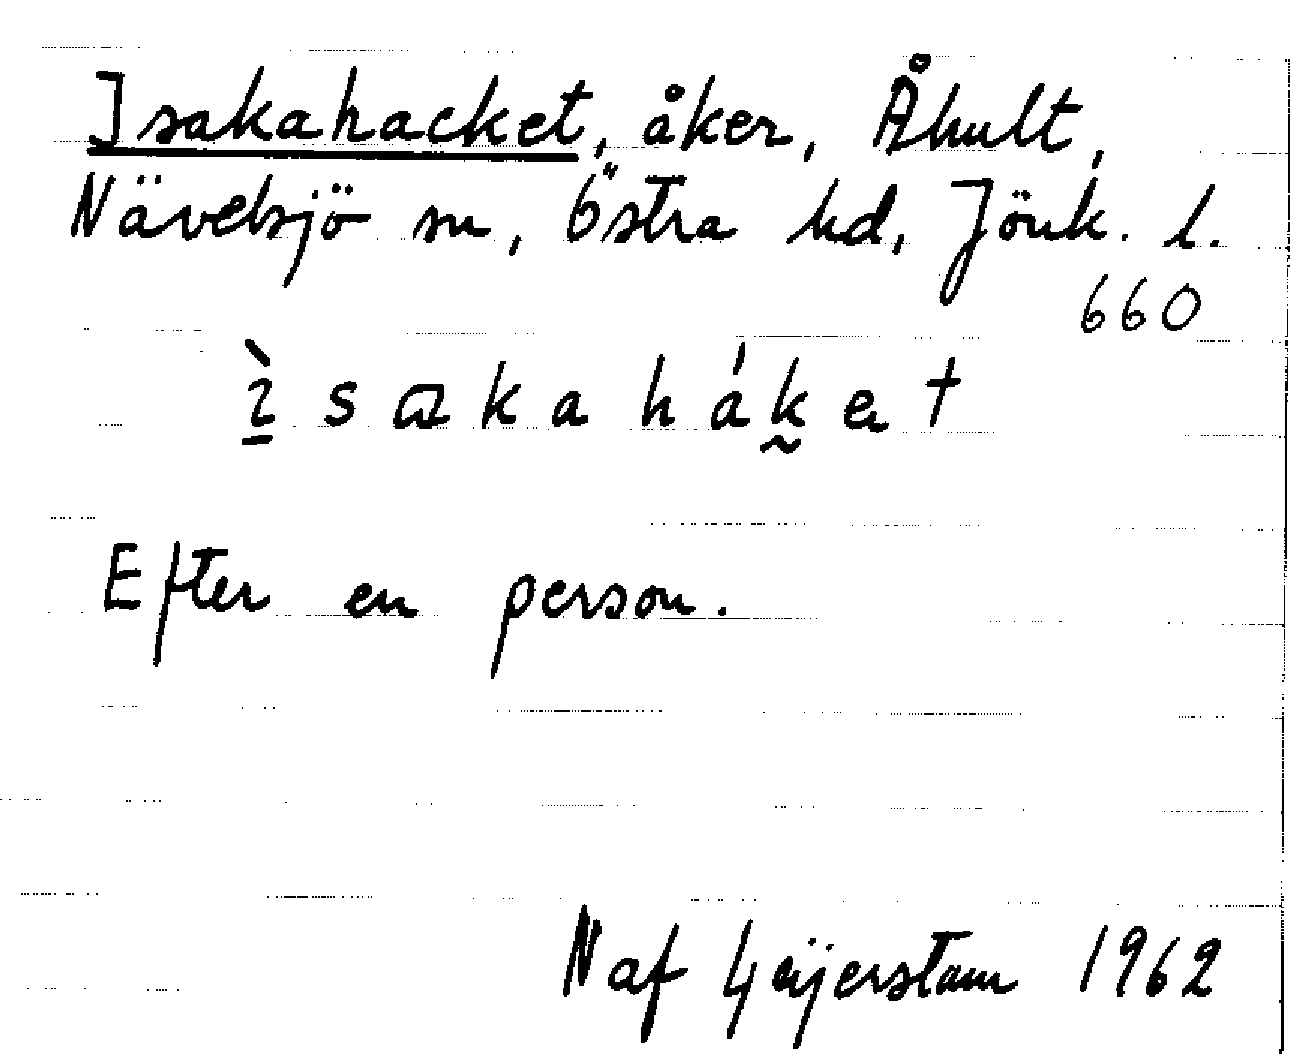 Isakahacket, åker, Åhult,
Nävelsjö sn, Östra hd, Jönk. l.
660
ı̀ s ɑ k a h á k̰ e t
Efter en person.
N af Geijerstam 1962